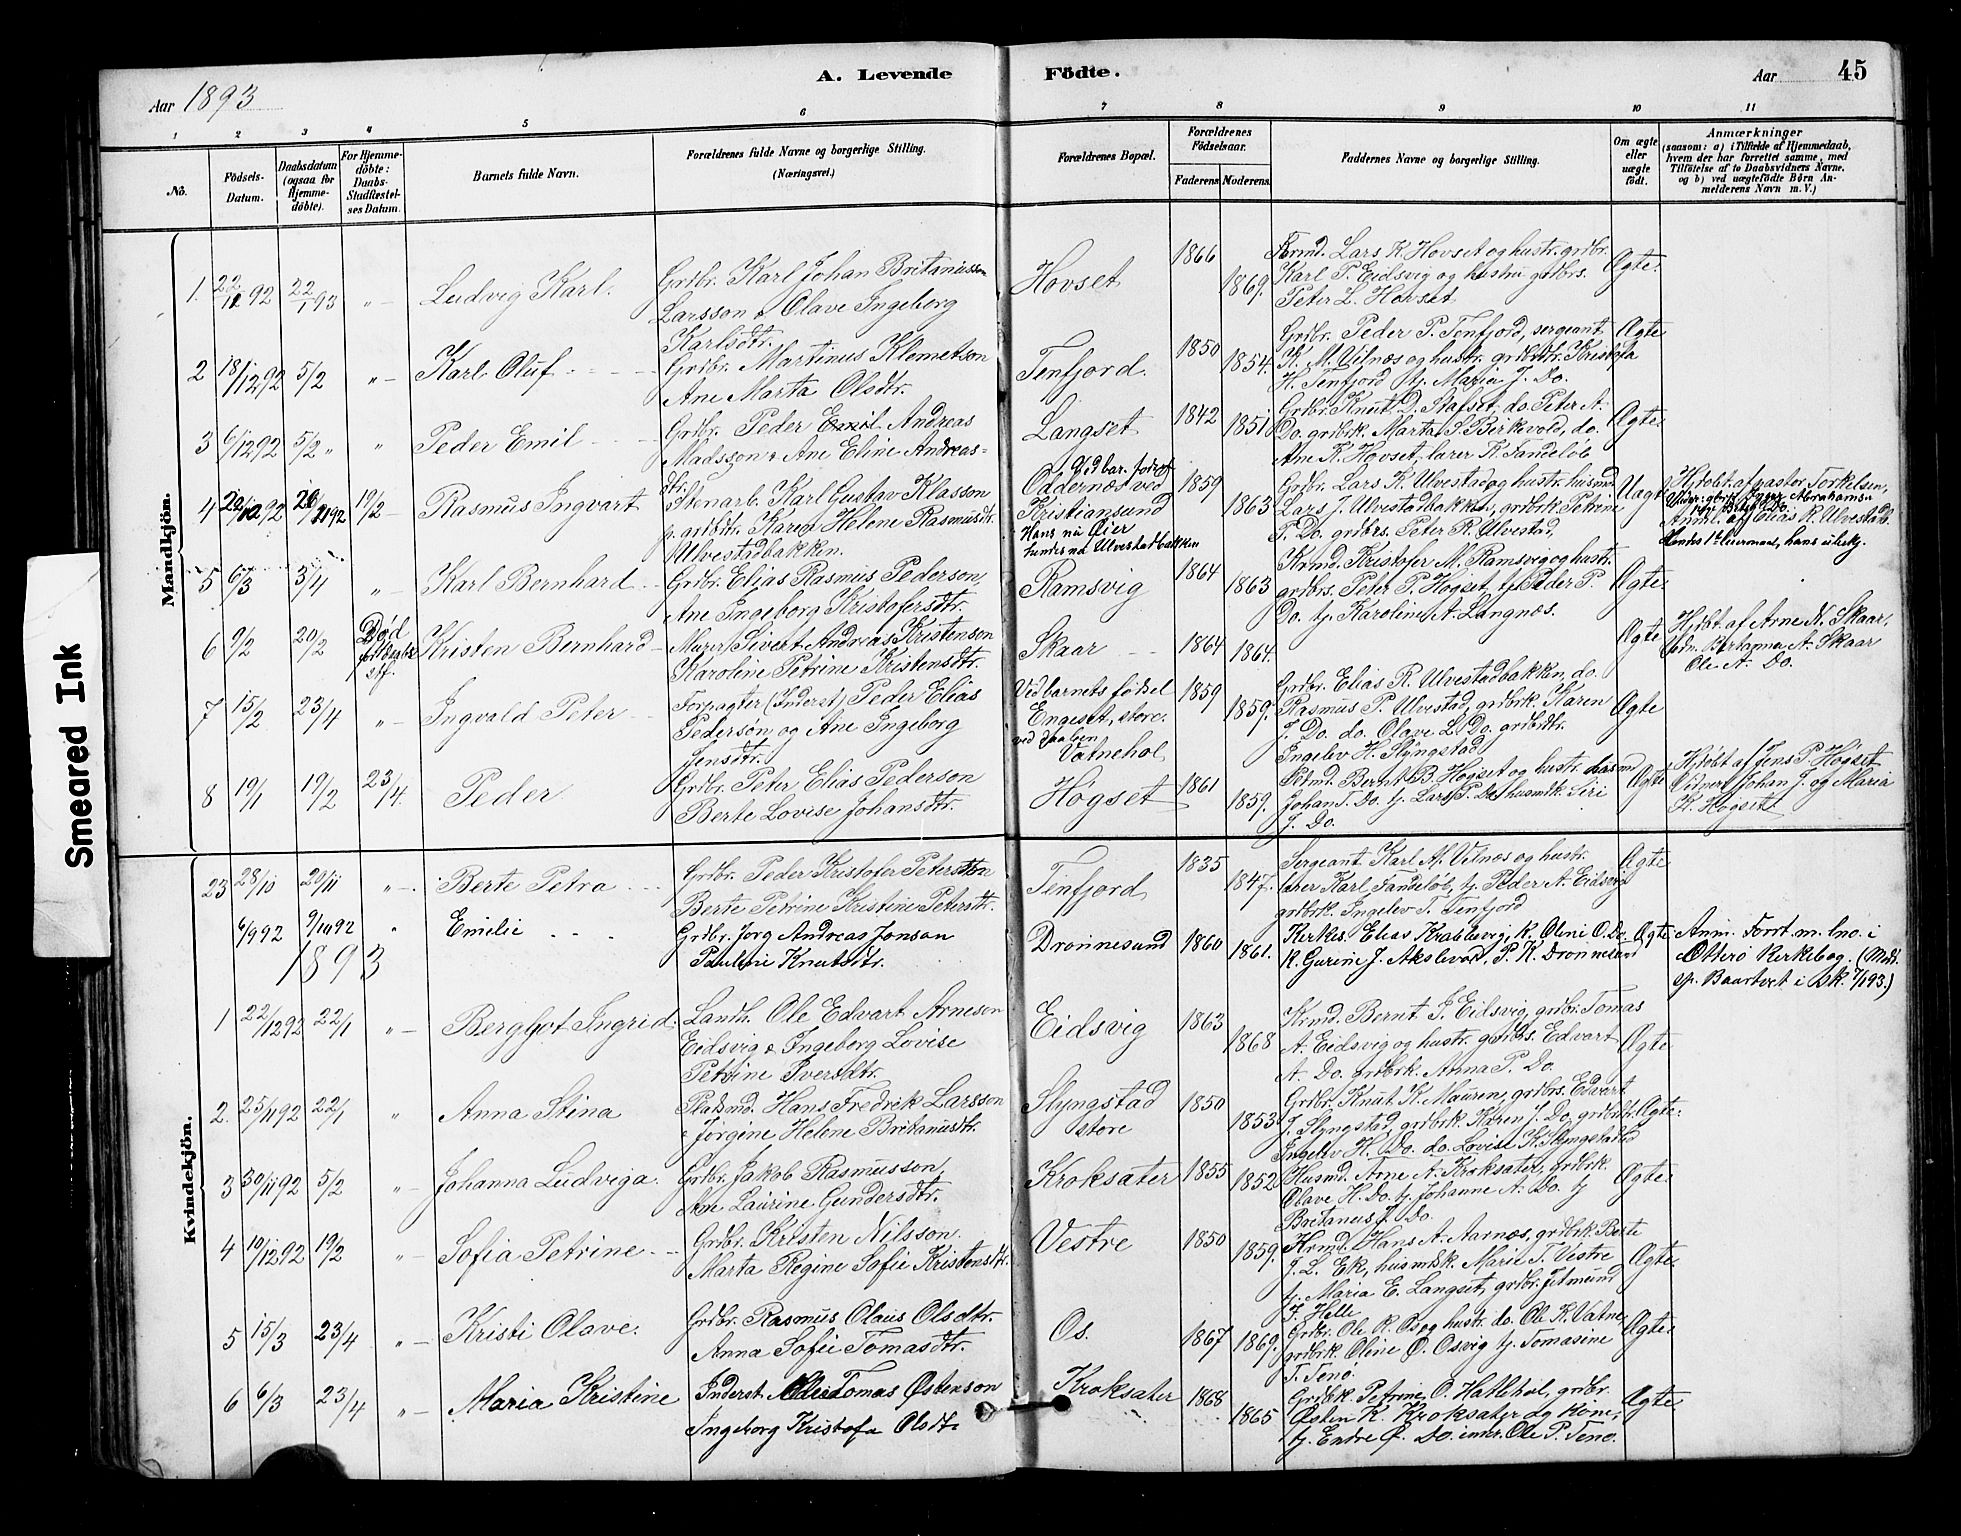 A. Levende Födte.
Aar 1893
Aar 45
1 2 3 4 5 6 7 8 9 10 11
No.
Födsels-Datum.
Daabsdatum (ogsaa for Hjemmedöbte).
For Hjemmedöbte: Daabs-Stadfæstelses Datum.
Barnets fulde Navn.
Forældrenes fulde Navne og borgerlige Stilling. (Næringsvei.)
Forældrenes Bopæl.
Forældrenes Födselsaar.
Faderens.
Moderens.
Faddernes Navne og borgerlige Stilling.
Om ægte eller uægte födt.
Anmærkninger (saasom: a) i Tilfælde af Hjemmedaab, hvem der har forrettet samme, med Tilföielse af to Daabsvidners Navne, og b) ved uægtefödte Börn Anmelderens Navn m. V.)
Smeared Ink
Mandkjön.
1. 22/12 92 22/1 93 " – Ludvig Karl. Grdbr. Karl Johan Britanusson Hovset 1866 1869. Krmd. Lars K. Hovset og hustr. grdbr. Ægte.
Larsson & Olave Ingeborg Karlsdtr. Karl P. Eidsvig og hustru grdbrs.
Peter L. Hovset
2 18/12 92 5/2 " – Karl Oluf Grdbr. Martinus Klemetson Tenfjord. 1850 1854. Grdbr. Peder P. Tenfjord, sergeant Ægte
Ane Marta Olsdtr. K. M. Vitnæs og hustr. grdbrdtr. Kristofa
H. Tenfjord tj. Maria J. Do.
3 6/12 92 5/2 " " Peder Emil Grdbr. Peder Emil Andreas Langset 1842 1851 Grdbr. Knut D. Stafset, do. Peter A. Ægte
Madsson & Ane Eline Andreasdtr. Do. grdbrk. Marta S. Birkevold, do.
Ane K. Hovset, lærer K. Fandeløb
4 29/10 92 26/11 92 19/2 – Rasmus Ingvart Stenarb. Karl Gustav Klasson Ved bar. fødsel 1859 1863 Grdbr. Lars K. Ulvestad og hustr. husmd. Uægte Hjdöbt. af pastor Torkelsen,
p. grdbdtr. Karen Helene Rasmusdtr. Oddernæs ved Kristiansund Lars J. Ulvestadbakken, grdbrk. Petrine
Ulvestadbakken. Hans nu Øier T. Do. grdbrs. Peter R. Ulvestad, Anml. af Elias R. Ulvestadb.
hendes nu Ulvestadbakken Hendes 1ste leiermaal, hans ubekj.
5 6/3 3/4 " – Karl Bernhard Grdbr. Elias Rasmus Pederson Ramsvig 1864 1863 Krmd. Kristofer M. Ramsvig og hustr. Ægte
Ane Ingeborg Kristofersdtr. grdbrs. Peter P. Hogset, tj. Peder P.
Do. tj. Karoline A. Langnæs.
6 9/2 20/2 Död Kristen Bernhard Murer Sivert Andreas Kristenson Skaar 1864 1864. Ægte Hjdöbt. af Arne N. Skaar,
Karoline Petrine Kristensdtr. Vidn. Bertanna A. Skaar
Ole A. Do.
7 15/2 23/4 " – Ingvald Peter Forpagter (Inderst) Peder Elias Ved barnets födsel 1859 1859. Grdbr. Elias R. Ulvestadbakken, do. Ægte
Pedersøn og Ane Ingeborg Engeset, store. Rasmus P. Ulvestad, grdbrk. Karen
Jensdtr. ved daaben Vatnehol J. Do. do. Olave L. Do. grdbrdtr.
Ingelev H. Slyngstad
8 19/1 19/2 23/4. Peder Grdbr. Peter Elias Pederson Høgset 1861 1859. Krmd. Bernt B. Høgset og hustr. husmd Ægte Hjdöbt af Jens P. Høgset
Berte Lovise Johansdtr. Johan J. Do. tj. Lars P. Do. husmdk. Siri Vidner Johan J. og Maria
J. Do. K. Høgset
Kvindekjön.
23 28/10 20/11 " – Berte Petra Grdbr. Peder Kristofer Peterson Tenfjord 1835 1847. Sergeant Karl M. Vitnæs og hustr. Ægte
Berte Petrine Kristine Petersdtr. lærer Karl Fandeløb, tj. Peder A. Eidsvig
grdbrk. Ingelev T. Tenfjord
6/9 92 9/10 92 " Emilie Grdbr. Jorg Andreas Jonsøn Drönnesund 1860 1861. Kirkes. Elias Krablevig, k. Oline O. Do. Ægte Anm. Forst. m. lno. i
Pauline Knutsdtr. K. Gurine J. Akslevol, P. K. Drønnesund Otterö Kirkebog. (Medd.
sp. Baartvet i Bk. 7/1 93.)
1893
1 22/12 92 22/1 " – Bergljot Ingrid. Landh. Ole Edvart Arneson Eidsvig 1863 1868 Krmd. Bernt J. Eidsvig, grdbr. Tomas Ægte
Eidsvig & Ingeborg Lovise A. Eidsvig og hustr. grdbs. Edvart
Petrine Iversdtr. A. Do. grdbrk. Anna P. Do.
2. 25/11 92 22/1 " Anna Stina Pladsmd. Hans Fredrik Larsson Slyngstad store 1850 1853 Grdbr. Knut K. Mauren, grdbrs. Edvart Ægte.
& Jørgine Helene Britanusdtr. J. Slyngstad, grdbrk. Karen J. Do, grdbrdtr.
Ingelev H. Do. do. Lovise K. Slyngstadlid
3 30/11 92 5/2 " – Johanna Ludviga. Grdbr. Jakob Rasmusson, Kroksater 1855 1852 Husmd. Arne A. Kroksater, grdbrk. Ægte.
Ane Laurine Gundersdtr. Olave H. Do. tj. Johanne A. Do. tj
Bretanus J. Do.
4 10/12 92 19/2 " – Sofia Petrine Grdbr. Kristen Nilsson. Vestre 1850 1859. Krmd. Hans A. Aarnæs, grdbrk. Berte Ægte.
Marta Regine Sofie Kristensdtr. J. L. Ek, husmdsk. Marie T. Vestre
tj. Maria E. Langset, grdbr. Amund
J. Helle
5 15/3 23/4 " – Kristi Olave. Grdbr. Rasmus Olaus Olsdtr. Os. 1867 1869. Grdbr. Ole K. Os og hustr. do. Ole K. Vatne Ægte.
Anna Sofie Tomasdtr. grdbrk. Oline O. Osvig tj. Tomasine
T. Teno.
6 6/3 23/4 " – Maria Kristine Inderst Tomas Østenson Kroksater 1868 1865 Grdbrk. Petrine O. Hatlehol, grdbr. Ægte
Ingeborg Kristofa Olsdtr. Østen K. Kroksater og Kone,
tj. Endre Ø. Do. inder. Ole P. Teno.